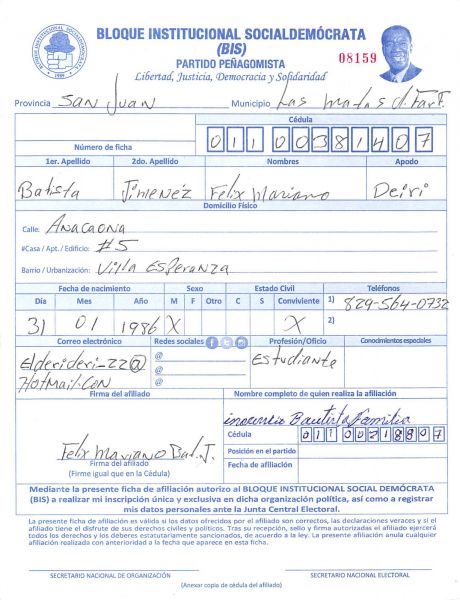 BLOQUE INSTITUCIONAL SOCIALDEMÓCRATA
(BIS)
PARTIDO PEÑAGOMISTA
Libertad, Justicia, Democracia y Solidaridad
08159
Provincia San Juan Municipio Las Matas d. Farf.
Cédula
Número de ficha 01100381407
1er. Apellido 2do. Apellido Nombres Apodo
Batista Jimenez Felix Mariano Deiri
Domicilio Físico
Calle: Anacaona
#Casa / Apt. / Edificio: #5
Barrio / Urbanización: Villa Esperanza
Fecha de nacimiento Sexo Estado Civil Teléfonos
Día Mes Año M F Otro C S Conviviente 1) 829-564-0732
31 01 1986 X X 2)
Correo electrónico Redes sociales Profesión/Oficio Conocimientos especiales
Elderideri_22@ @ Estudiante
HotMail.Con @
@
Firma del afiliado Nombre completo de quien realiza la afiliación
inocencio Bautista Familia
Cédula 01100218807
Felix Mariano Bat. J. Posición en el partido
Firma del afiliado Fecha de afiliación
(Firme igual que en la Cédula)
Mediante la presente ficha de afiliación autorizo al BLOQUE INSTITUCIONAL SOCIAL DEMÓCRATA
(BIS) a realizar mi inscripción única y exclusiva en dicha organización política, así como a registrar
mis datos personales ante la Junta Central Electoral.
La presente ficha de afiliación es válida si los datos ofrecidos por el afiliado son correctos, las declaraciones veraces y si el
afiliado tiene el disfrute de sus derechos civiles y políticos. Tras su recepción, sello y firma autorizadas el afiliado ejercerá
todos los derechos y los deberes estatutariamente sancionados, de acuerdo a la ley. La presente afiliación anula cualquier
afiliación realizada con anterioridad a la fecha que aparece en esta ficha.
SECRETARIO NACIONAL DE ORGANIZACIÓN SECRETARIO NACIONAL ELECTORAL
(Anexar copia de cédula del afiliado)